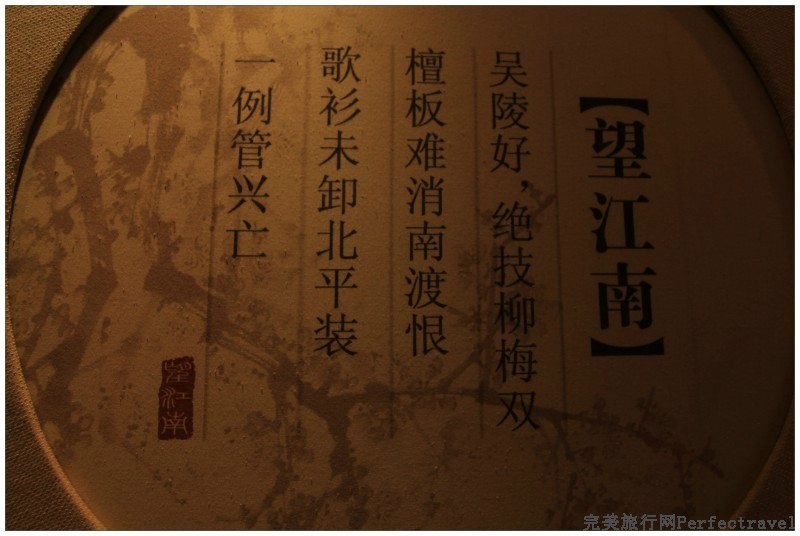 【望江南】
吴陵好，绝技柳梅双
檀板难消南渡恨
歌衫未卸北平装
一例管兴亡
望江南
完美旅行网Perfectravel